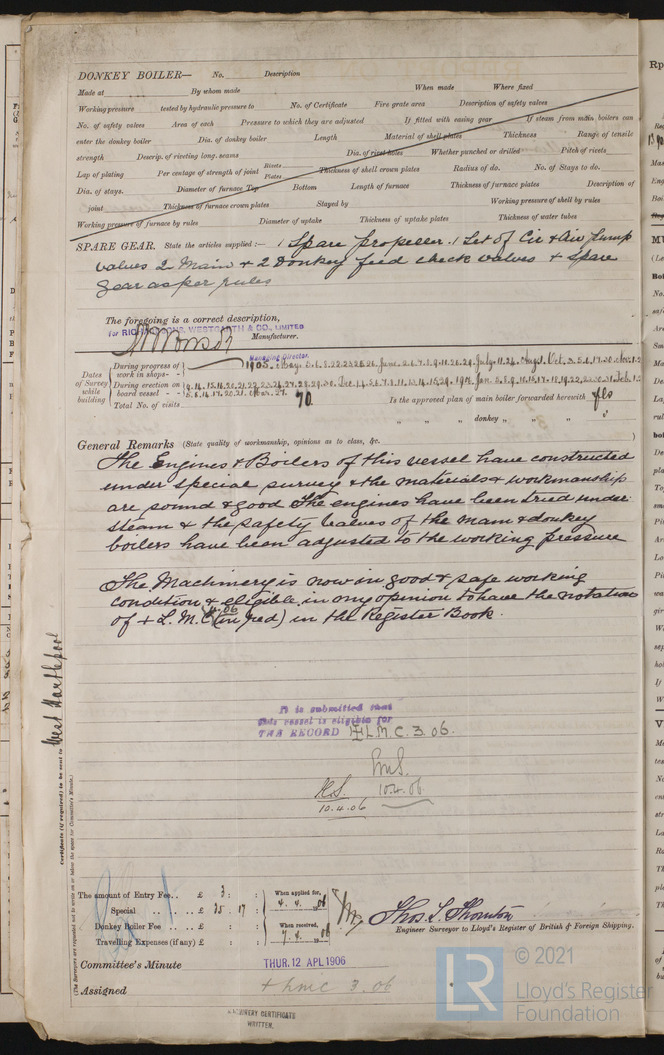 DONKEY BOILER— No. Description
Made at By whom made When made Where fixed
Working pressure tested by hydraulic pressure to No. of Certificate Fire grate area Description of safety valves
No. of safety valves Area of each Pressure to which they are adjusted If fitted with easing gear If steam from main boilers can
enter the donkey boiler Dia. of donkey boiler Length Material of shell plates Thickness Range of tensile
strength Descrip. of riveting long. seams Dia. of rivet holes Whether punched or drilled Pitch of rivets
Lap of plating Per centage of strength of joint Rivets Plates Thickness of shell crown plates Radius of do. No. of Stays to do.
Dia. of stays. Diameter of furnace Top Bottom Length of furnace Thickness of furnace plates Description of
joint Thickness of furnace crown plates Stayed by Working pressure of shell by rules
Working pressure of furnace by rules Diameter of uptake Thickness of uptake plates Thickness of water tubes
SPARE GEAR. State the articles supplied :— 1 Spare propeller. 1 Set of Cir & Air pump
valves 2 Main & 2 Donkey feed check valves & spare
gear as per rules
The foregoing is a correct description,
for RICHARDSONS, WESTGARTH & CO., LIMITED
Manufacturer.
Managing Director.
Dates of Survey while building
During progress of work in shops - -
1905.
During erection on board vessel - -
Total No. of visits 70
Is the approved plan of main boiler forwarded herewith yes
" " " donkey " " "
General Remarks (State quality of workmanship, opinions as to class, &c. )
The Engines & Boilers of this vessel have constructed
under special survey & the materials & workmanship
are sound & good The engines have been tried under
steam & the safety valves of the main & donkey
boilers have been adjusted to the working pressure
The Machinery is now in good & safe working
condition & eligible in my opinion to have the notation
of + L. M. C. 3.06 (in red) in the Register Book.
It is submitted that
this vessel is eligible for
THE RECORD + L.M.C. 3.06.
10.4.06
10.4.06
Certificate (if required) to be sent to West Hartlepool
(The Surveyors are requested not to write on or below the space for Committee's Minute.)
The amount of Entry Fee . . £ 3 : :
Special . . £ 35 : 17 :
Donkey Boiler Fee £ : :
Travelling Expenses (if any) £ : :
When applied for,
4.4.1906
When received,
7.4.1906
Thos. L. Thornton
Engineer Surveyor to Lloyd's Register of British & Foreign Shipping.
Committee's Minute THUR. 12 APL 1906
Assigned + LMC 3.06
MACHINERY CERTIFICATE
WRITTEN.
LR
© 2021
Lloyd's Register
Foundation